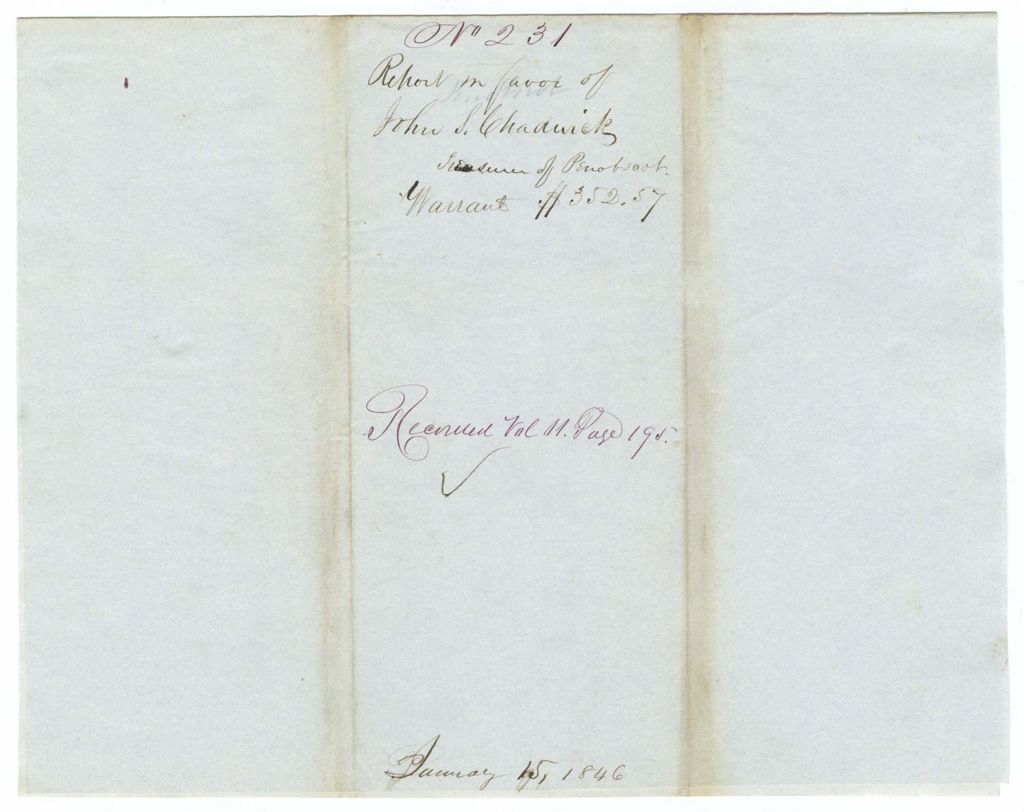 No 231
Report in favor of
John S. Chadwick
Treasurer of Penobscot.
Warrant $352.57
Recorded Vol 11. Page 195.
January 15, 1846